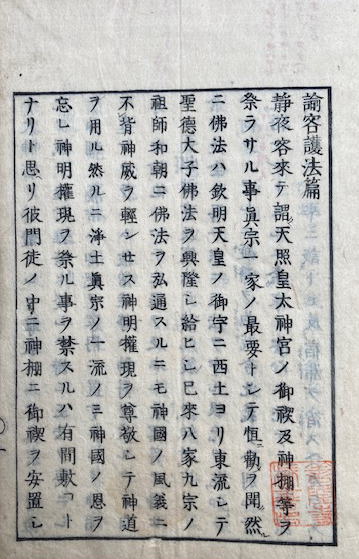 諭客護法篇
靜夜客來テ謂天照皇太神宮ノ御禊及神棚等ヲ
祭ラサル事眞宗一家ノ最要トシテ恒ノ勸ヲ聞然
ニ佛法ハ欽明天皇ノ御宇ニ西土ヨリ東流シテ
聖德大子佛法ヲ興隆シ給ヒシ已來八家九宗ノ
祖師和朝ニ佛法ヲ弘通スルニモ神國ノ風義ニ
不背神威ヲ輕ンセス神明權現ヲ尊敬シテ神道
ヲ用ル然ルニ淨土眞宗ノ一流ノミ神國ノ恩ヲ
忘レ神明權現ヲ祭ル事ヲ禁スルハ有間數ト
ナリト思リ彼門徒ノ中ニ神棚ニ御禊ヲ安置シ